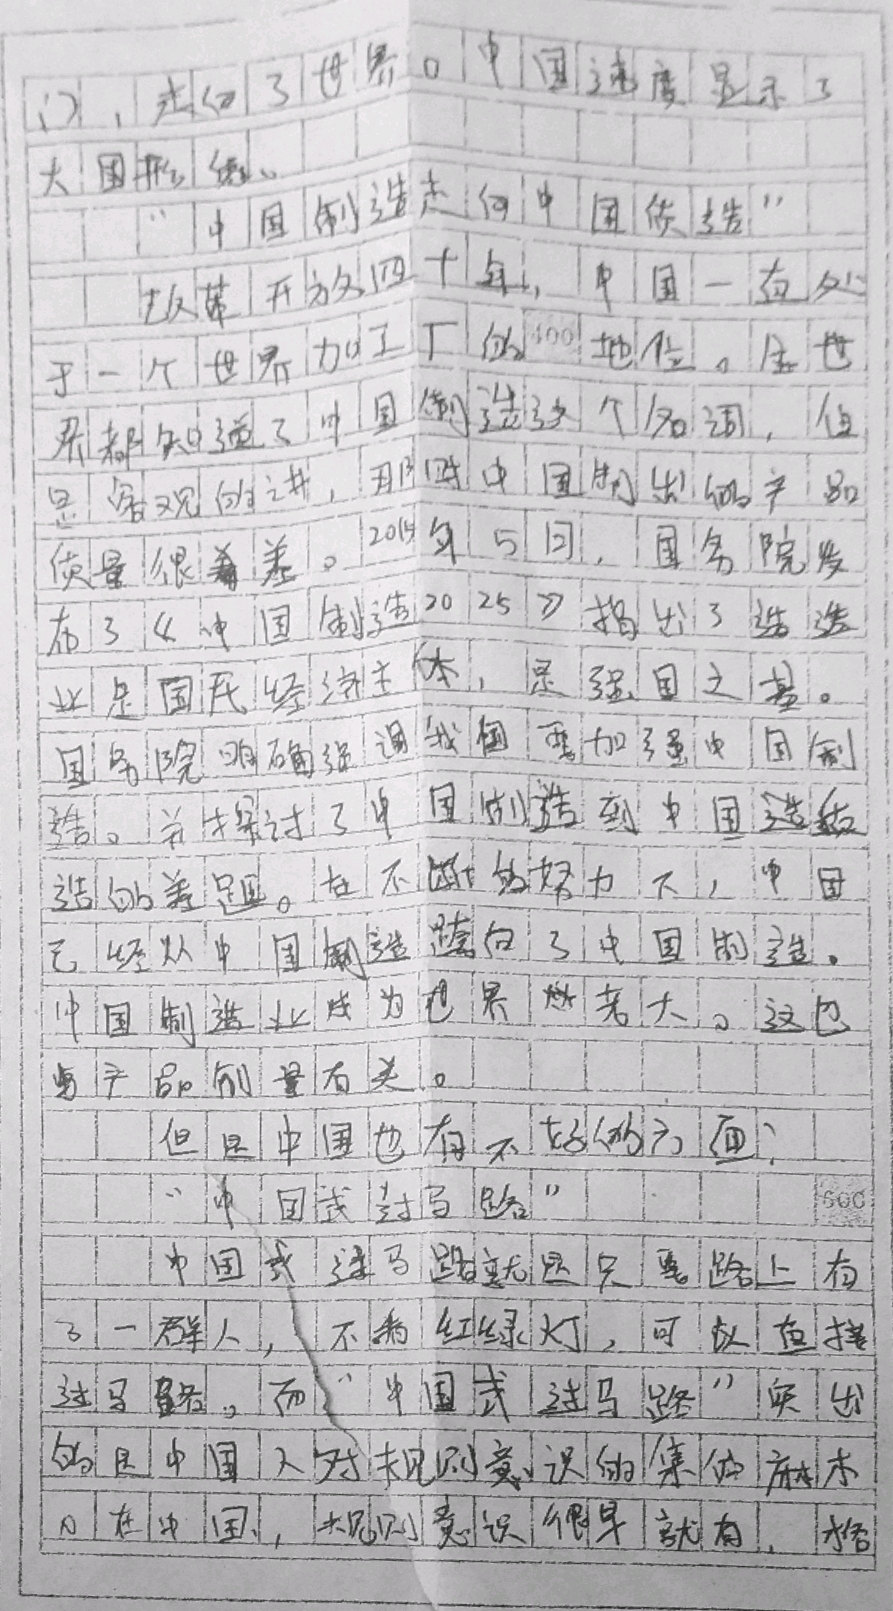 门，走向了世界。中国速度显示了
大国形象。
“中国制造走向中国质造”
改革开放四十年，中国一直处
于一个世界加工厂的400地位。全世
界都知道了中国制造这个名词，但
是客观的讲，那时中国制出的产品
质量很差。2015年5月，国务院发
布了《中国制造2025》指出了造造
业是国民经济主体，是强国之基。
国务院明确强调我国要加强中国制
造。并探讨了中国制造到中国造
造的差距。在不断的努力下，中国
已经从中国制造跨向了中国制造。
中国制造业成为世界老大。这也
与产品制量有关。
但是中国也有不好的方面：
“中国式过马路”
600
中国式过马路就是只要路上有
了一群人，不看红绿灯，可以直接
过马路。而“中国式过马路”突出
的是中国人对规则意识的集体麻木
。在中国，规则意识很早就有，